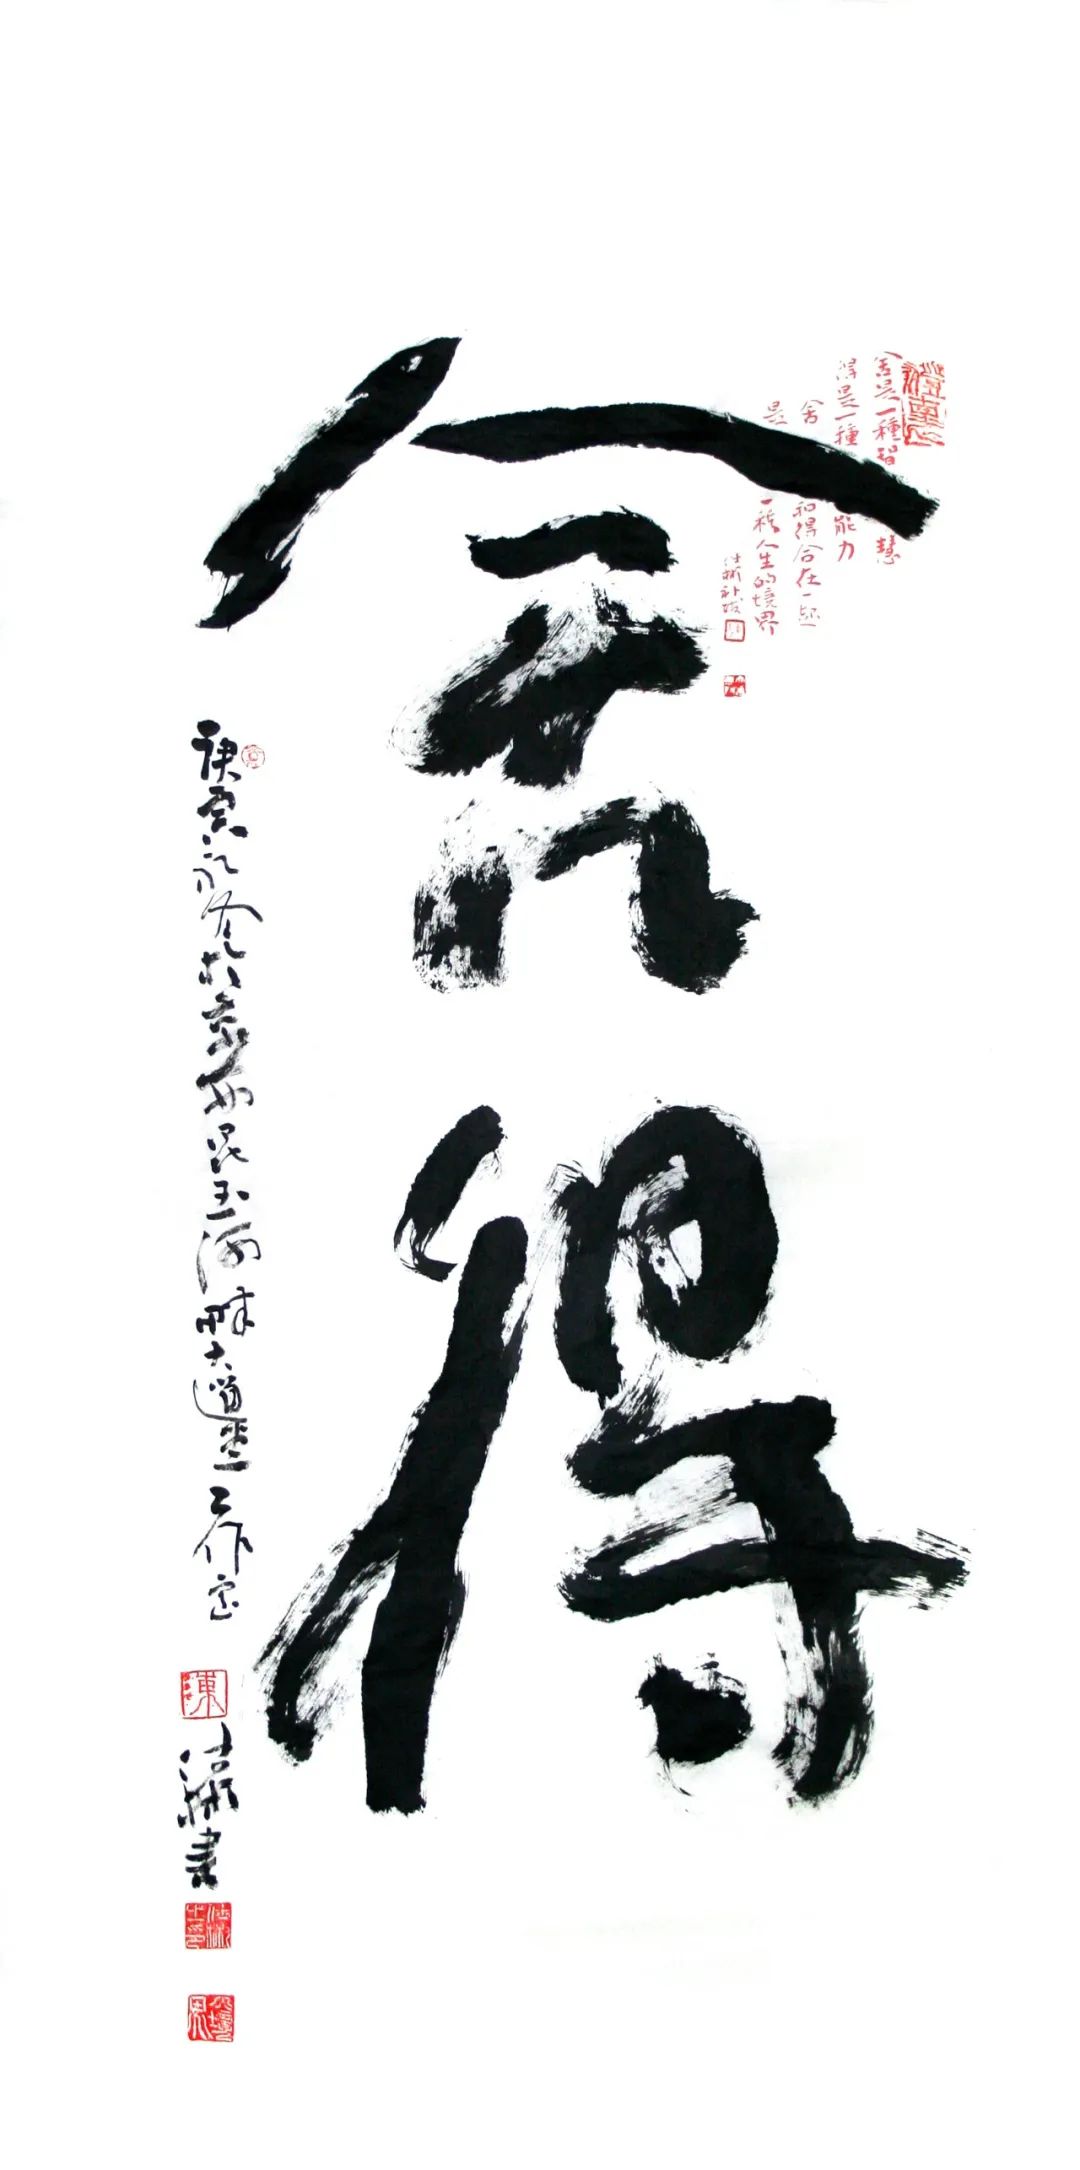 舍得
舍是一種智慧
得是一種能力
舍和得合在一起
是一種人生的境界
仕彬補技
庚寅初冬於京西昆玉河畔大道堂工作室
仕彬書